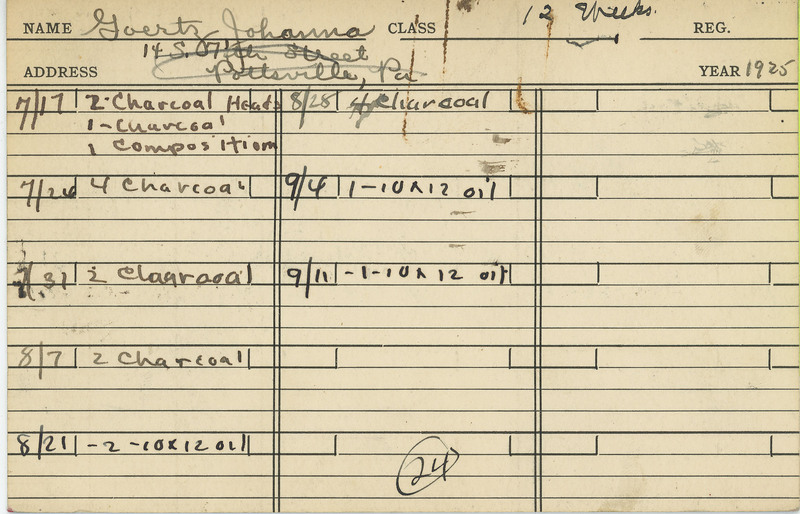 NAME Goertz, Johanna CLASS 12 Weeks. REG.
14 S. Street
ADDRESS Pottsville, Pa YEAR 1925
7/17 2-Charcoal Heads 8/28 4 Charcoal
1-Charcoal
1 Composition
7/24 4 Charcoal 9/4 1-10x12 oil
7/31 2 Chaaraoal 9/11 -1-10x12 oil
8/7 2 Charcoal
8/21 -2-10x12 oil
24